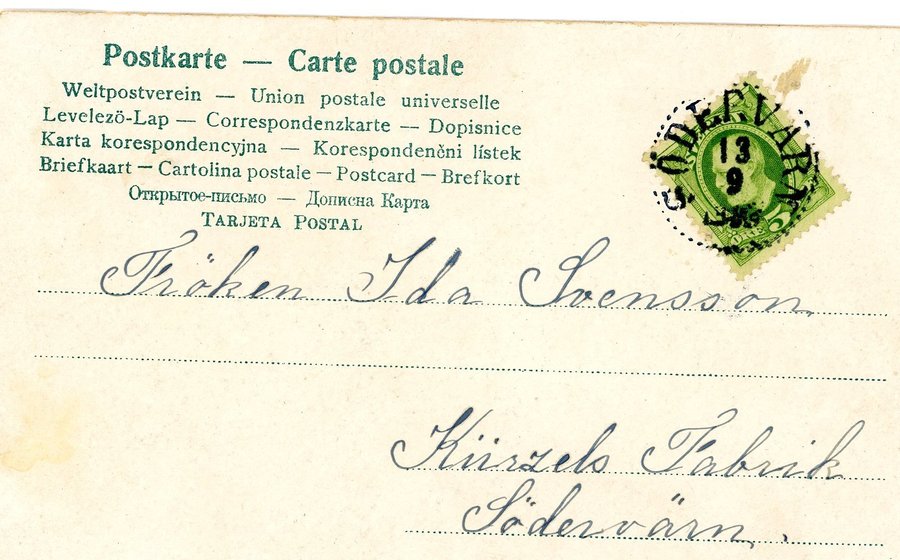 Postkarte — Carte postale
Weltpostverein — Union postale universelle
Levelezö-Lap — Correspondenzkarte — Dopisnice
Karta korespondencyjna — Korespondenční lístek
Briefkaart — Cartolina postale — Postcard — Brefkort
Открытое-письмо — Дописна Карта
TARJETA POSTAL
SÖDERVÄRN
13
9
5
ÖRE
Fröken Ida Svensson
Kürzels Fabrik
Södervärn.